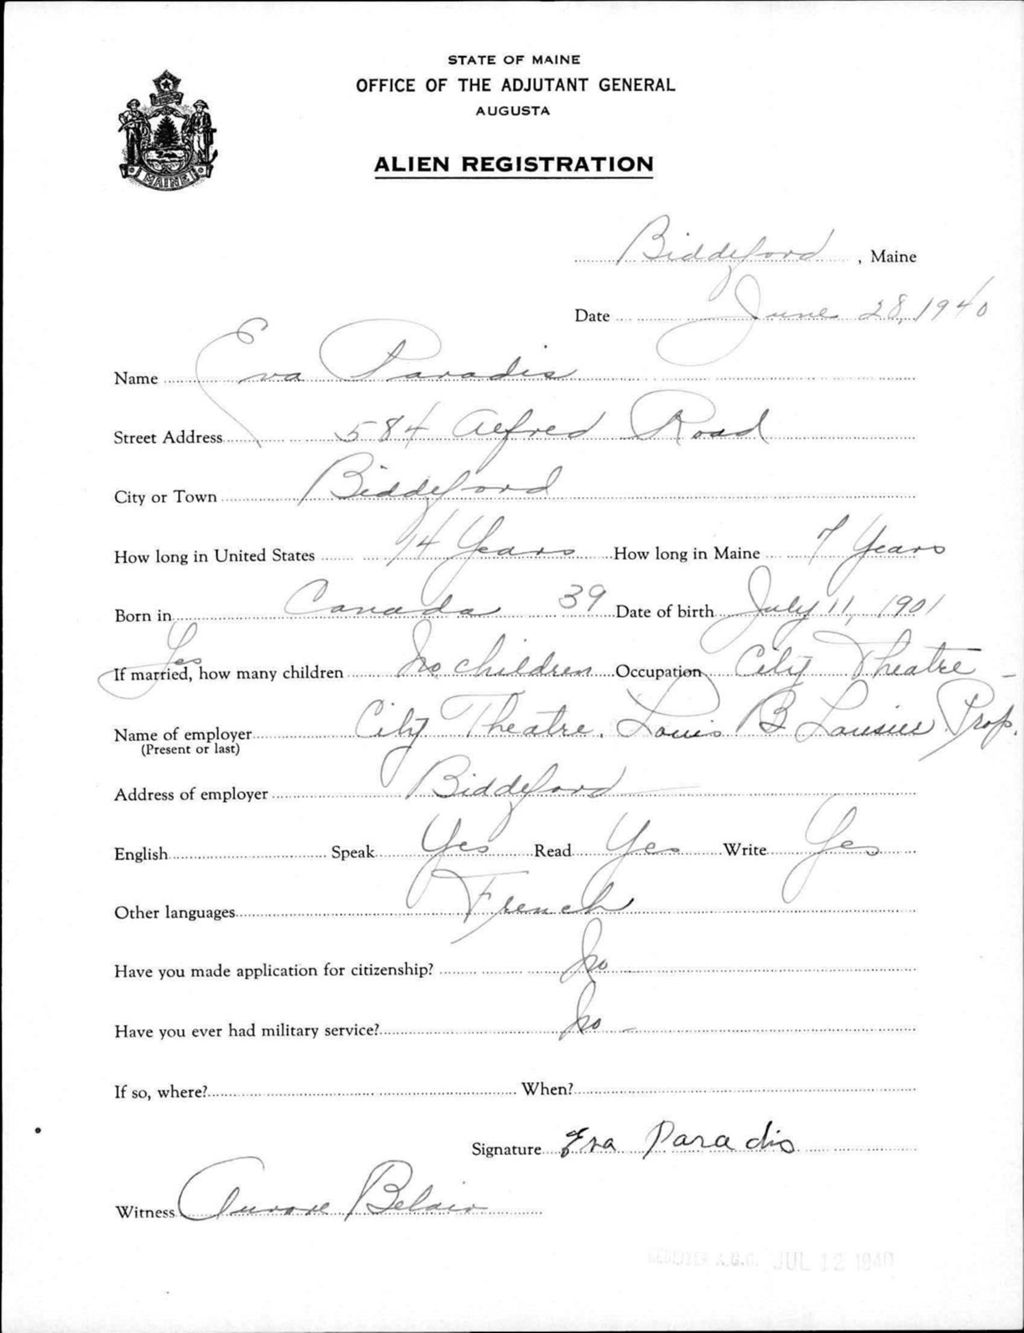 STATE OF MAINE
OFFICE OF THE ADJUTANT GENERAL
AUGUSTA
ALIEN REGISTRATION
MAINE
Biddeford, Maine
Date June 28, 1940
Name Eva Paradis
Street Address 584 Alfred Road
City or Town Biddeford
How long in United States 14 Years How long in Maine 7 Years
Born in Canada 39 Date of birth July 11, 1901
Yes
If married, how many children No children Occupation City Theatre
Name of employer City Theatre. Louis B Prop.
(Present or last)
Address of employer Biddeford
English Speak Yes Read Yes Write Yes
Other languages French
Have you made application for citizenship? No
Have you ever had military service? No
If so, where? When?
Signature Eva Paradis
Witness Aurore Belair
A.G.O. JUL 12 1940